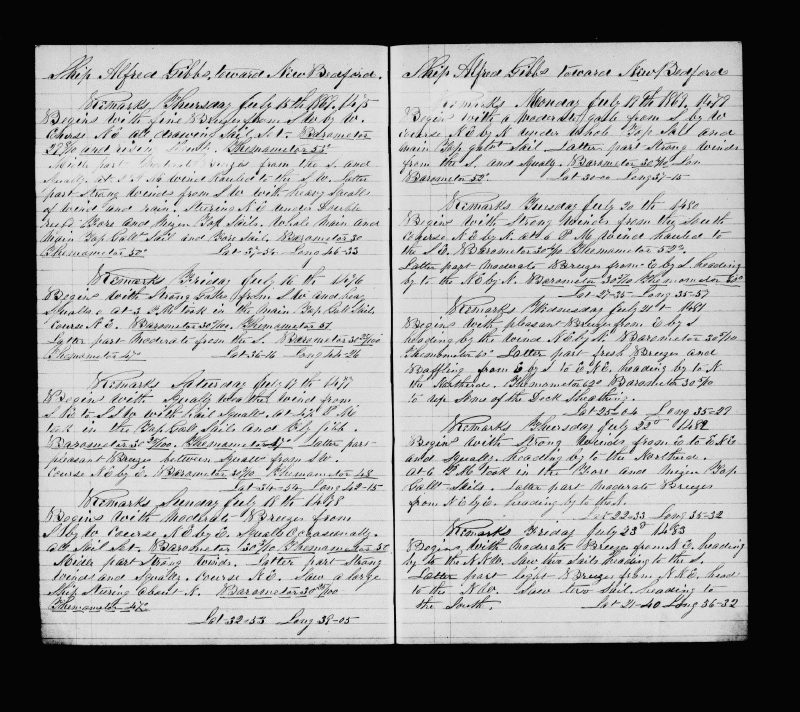 Ship Alfred Gibbs, toward New Bedford.
Remarks Thursday July 15th 1869, 1475
Begins with fine Breezes from S W by W.
Course N E all drawing Sail Set. Barometer
and rising Thermameter 53°
Midle part from the S. and
Squaly at wind hauled to the S W. Latter
part strong winds from S W with heavy Squalls
of wind and rain. Stearing N E under double
reefd Fore and Mizen Top Sails. Whole Main and
Main Top Gall Sail and Fore Sail. Barometer 30
Thermameter 50° Lat 37-54 Long 46-33
Remarks Friday July 16 th 1476
Begins with Strong Gales from S W and heavy
Squalls at 3 P M took in the Main Top Gall Sail.
Course N E. Barometer Thermameter 51
Latter part Moderate from the S. Barometer
Thermameter 47° Lat 36-16 Long 44-26
Remarks Saturday July 17 th 1477
Begins with Squaly weather wind from
S W to S S W with hail Squalls. At P M
took in the Top Gall Sails and Fly jibb.
Barometer Thermameter Latter part
pleasant Breeze between Squalls from S W.
Course N E by E. Barometer Thermameter 48
Lat 34-54 Long 42-15
Remarks Sunday July 18 th 1478
Begins with Moderate Breezes from
S W by W course N E by E. Squalls Occasionally.
all Sail Set. Barometer Thermameter 50
Midle part Strong winds. Latter part Strong
winds and Squaly. Course N E. Saw a large
Ship Stearing about N. Barometer
Thermameter
Lat 32-53 Long 39-05
Ship Alfred Gibbs toward New Bedford
Remarks Monday July 19th 1869. 1479
Begins with a moderate gale from S by W
course N E by N under whole Top Sail and
main Top gallt Sail. Latter part Strong winds
from the S. and Squaly. Barometer
Barometer 52° Lat 30-00 Long 37-15
Remarks Tuesday July 20 th 1480
Begins with Strong Winds from the South
Course N E by N. at 6 P M wind hauled to
the S E. Barometer Thermameter 52°
Latter part Moderate Breezes from E by S heading
by to the N E by N. Barometer Thermometer
Lat 27-35 Long 35-57
Remarks Wednesday July 21st 1481
Begins with pleasant Breezes from E by S
heading by the wind N E by N. Barometer
Thermometer Latter part fresh Breezes and
Baffling from E by S to E N E. heading by to N.
the Northerd. Thermameter 62° Barometer
to rip Some of the Deck Sheathing.
Lat 25-04 Long 35-29
Remarks Thursday July 22d 1482
Begins with Strong Winds from E to E N E
and Squaly. heading by to the Northerd.
At 6 P M took in the Fore and Mizen Top
Gallt Sails. Latter part moderate Breezes
from N E by E. heading by to the N.
Lat 22-33 Long 35-32
Remarks Friday July 23d 1483
Begins with Moderate Breezes from N E. heading
by to the N N W. Saw two Sails heading to the S.
Latter part light Breezes from N N E. head
to the N W. Saw two Sail heading to
the South. Lat 21-40 Long 36-32